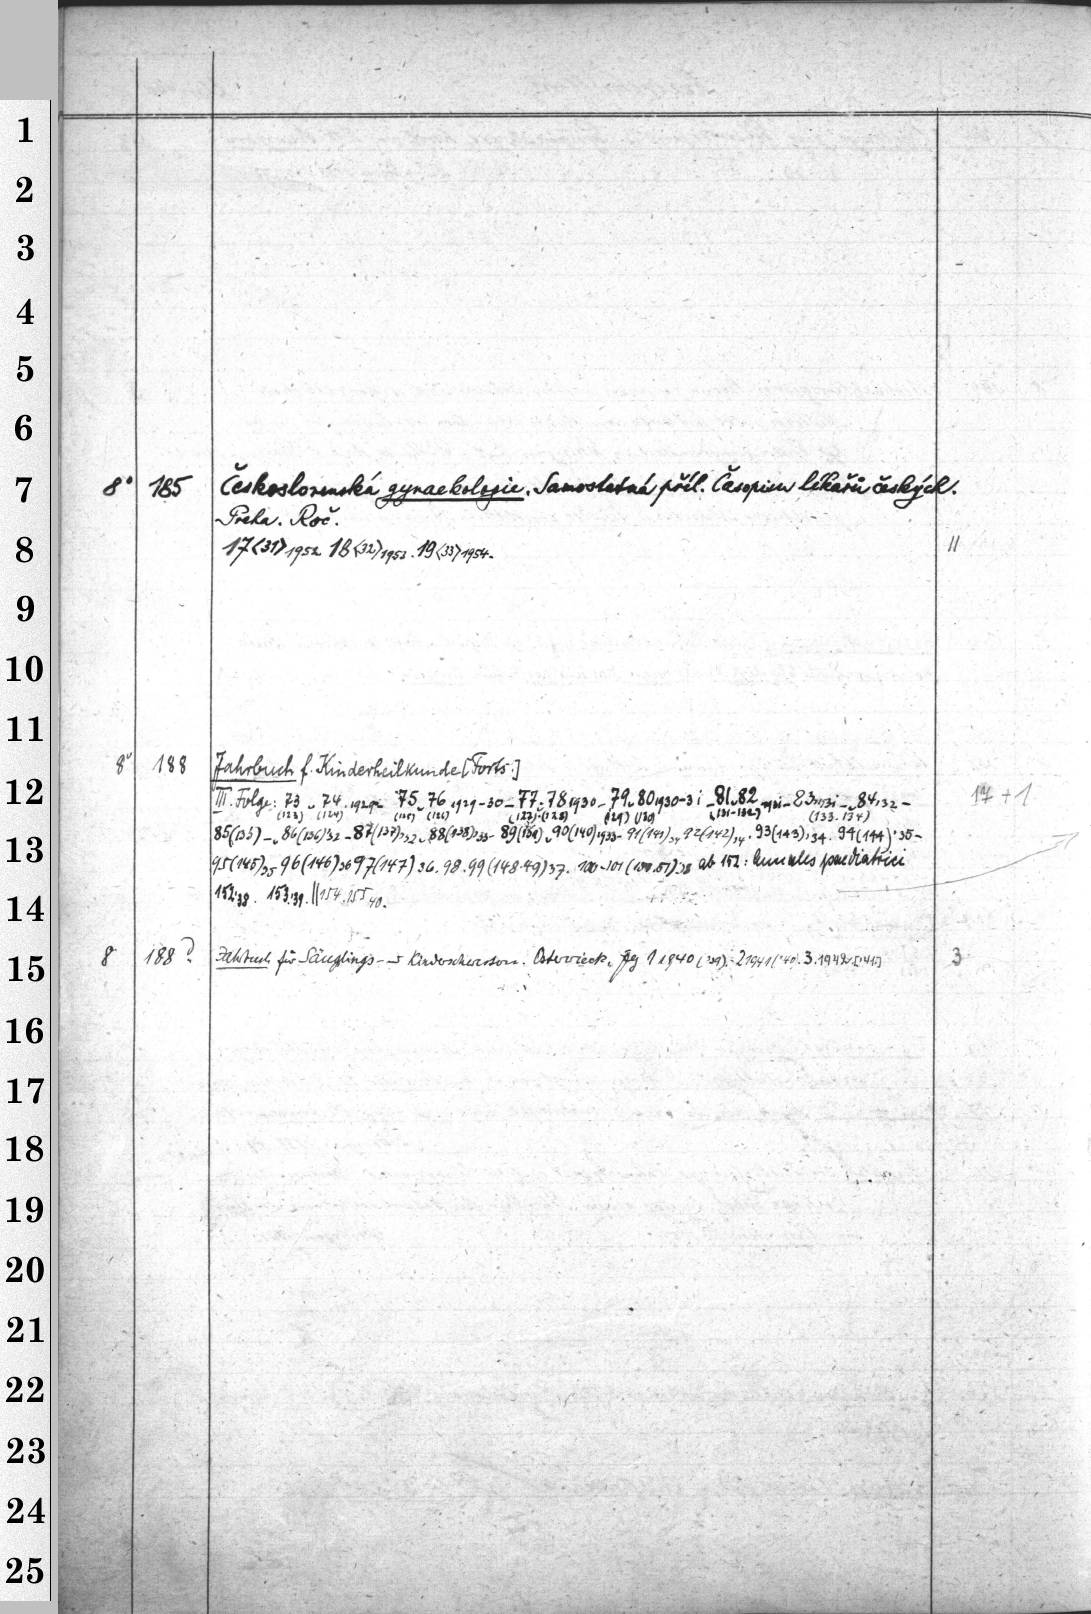 1
2
3
4
5
6
7 8° 185 Československá gynaekologie. Samostatná příl. Časopisu lékařů českých.
Praha. Roč.
8 17(31)1952 18(32)1953. 19(33)1954. ||
9
10
11
8° 188 Jahrbuch f. Kinderheilkunde [Forts.]
12 III. Folge: 73 74. 75 76 1929-30 - 77. 78 1930 - 79. 80 1930-31 - 81. 82 1931 - 83 1931 - 84,32 - 17 + 1
(123) (124) (125) (126) (127)-(128) (129) (130) (131-132) (133.134)
13 85(135) - 86(136)32 - 87(137)32. 88(138)33 - 89(139) 90(140)1933 - 91(141)34 92(142)34. 93(143),34. 94(144)'35 -
95(145)35 96(146)36 97(147)36. 98.99(148.49)37. 100-101(150.51)38 ab 152: Annales paediatrici
14 152.38. 153.39. || 154.155 40.
15 8 188? Jahrbuch für Säuglings- Osterwieck. Jg 1 1940('39). 2 1941('40). 3.1942('41) 3
16
17
18
19
20
21
22
23
24
25